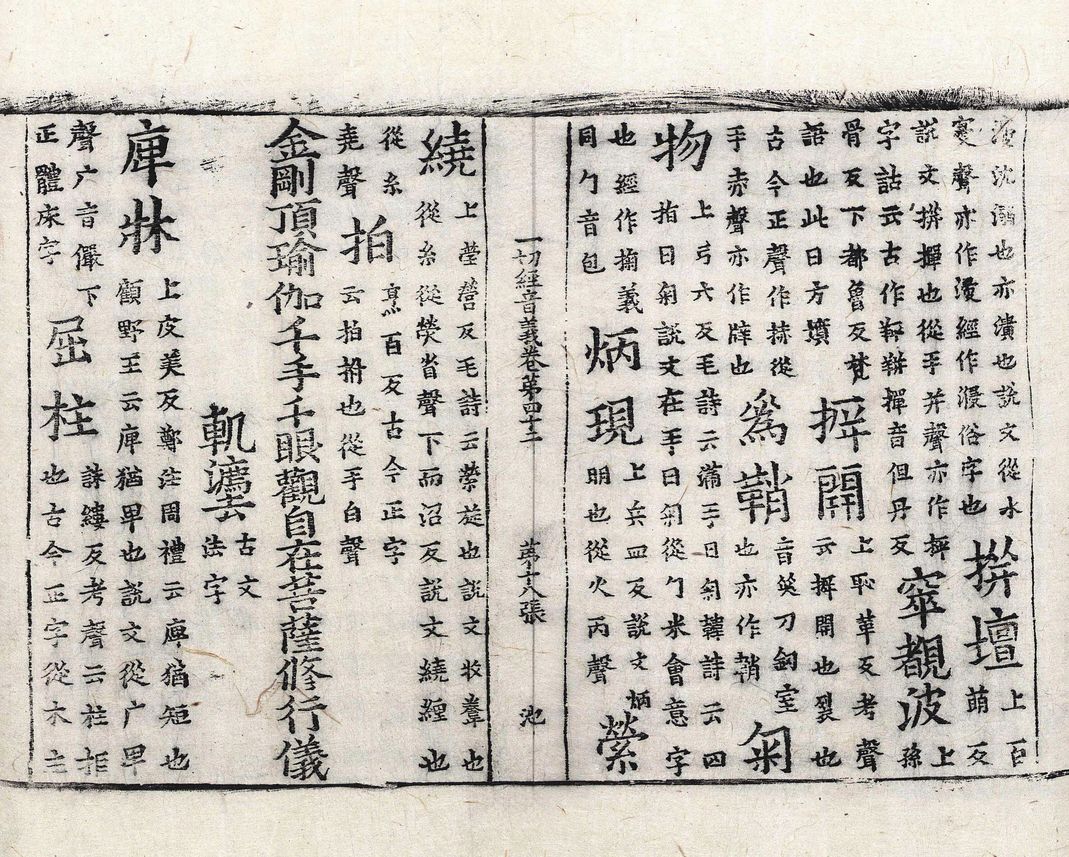 沈溺也亦漬也說文從水
聲亦作浸經作寖俗字也
拼壇
上百
萌反
說文拼撣也從手并聲亦作抨
字詁云古作軯軿撣音但丹反
窣覩波
上
孫
骨反下都魯反梵
語也此曰方墳
擗開
上恥革反考聲
云擗開也裂也
古今正聲作捇從
手赤聲亦作㡿也
為鞘
音笑刀鉰室
也亦作鞘
匊
物
上弓六反毛詩云滿手曰匊韓詩云四
指曰匊說文在手曰匊從勹米會意字
也經作掬義
同勹音包
炳現
上兵皿反說文炳
明也從火丙聲
縈
一切經音義卷第四十二
第十八張
池
繞
上塋營反毛詩云縈旋也說文收韏也
從糸從熒省聲下而沼反說文繞纏也
從糸
堯聲
拍
烹百反古今正字
云拍拊也從手白聲
金剛頂瑜伽千手千眼觀自在菩薩修行儀
軌灋云
古文
法字
庳牀
上皮美反鄭注周禮云庳猶短也
顧野王云庳猶卑也說文從广卑
聲广音儼下
正體床字
屈柱
誅縷反考聲云柱拒
也古今正字從木主